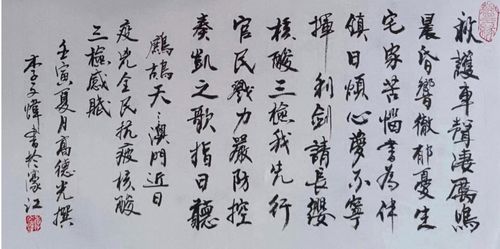 救護車聲淒厲鳴
晨昏響徹郁憂生
宅家苦惱書為伴
鎮日煩心夢不寧
揮利劍請長纓
核酸三檢我先行
官民戮力嚴防控
奏凱之歌指日聽
鷓鴣天·澳門近日
疫兇全民抗疫核酸
三檢感賦
壬寅夏月高德光撰
李文煒書於濠江